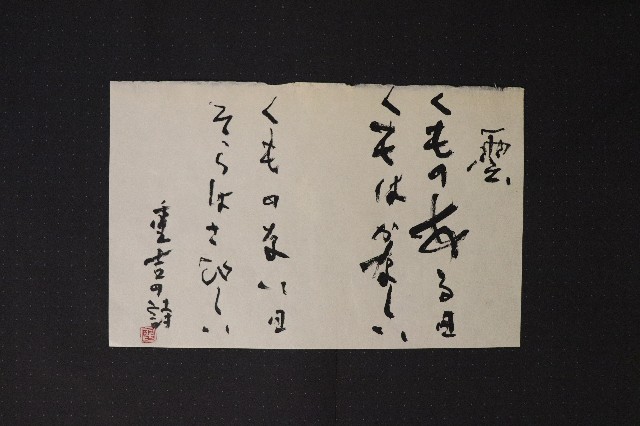 雲
くものある日
くもはかなしい
くものない日
そらはさびしい
重吉の詩